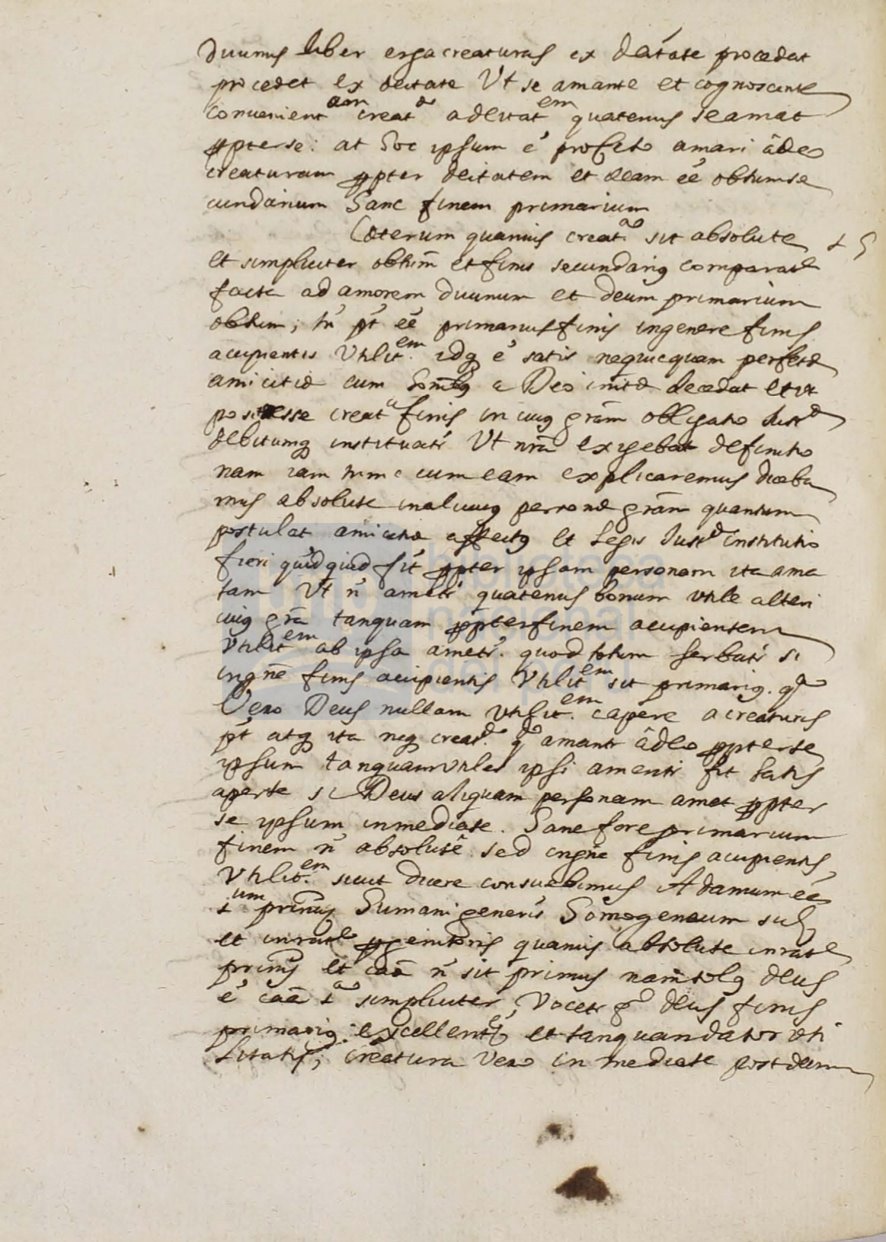 diuinus liber erga creaturas ex deitate procedat
procedet ex deitate Vt se amante et cognoscente
convenientiam creat.ae a deitatem quatenus se amat
ppter se: at hoc ipsum ē profecto amari a deo
creaturam ppter deitatem et eam eē obtum se
cundarium hanc finem primarium
Caeterum quamuis creat.a sit absolute
et simpliciter obtum et finis secundarius comparate
facta ad amorem diuinum et deum primarium
obtum; tn̄ pt̄ eē primarius finis in genere finis
accipientis Vtilit.em idq ē satis nequicquam perfectae
amicitiae cum hominibus a Deo initae decedat et ut
possit esse creat.a finis in cuius grām obligatio Iustae
debitumq instituatr Vt nrā exigebat definitio
nam iam tunc cum eam explicaremus diceba
mus absolute in alicuius personae grām quantum
postulat amicitiae affectus et legis Iustae institutio
fieri quidquid fit ppter ipsam personam ita ama
tam Vt n̄ ametr quatenus bonum Vtile alteri
cuius grā tanquam ppter finem accipientem
Vtilit.em ab ipsa ametr. quod totum serbatr si
in gne finis accipientis Vtilit.em sit primarius. qa
Vero Deus nullam Vtilit.em capere a creaturis
pt̄ atq ita neq creat.ae qae amantr a deo ppter se
ipsum tanquam Vtiles ipsi amenti fit satis
aperte si Deus aliquam personam amat ppter
se ipsum inmediate. hanc fore primarium
finem n̄ absolute sed in gne finis accipientis
Vtilit.em sicut dicere consuebimus Adamum eē
1um prinūs humani generis
et in raoē pgenitoris quamuis absolute in raoē
prinūs et caā n̄ sit primus nam solus deus
ē caā 1a simpliciter Vocetr go deus finis
primarius excellentae et tanquam dator Vti
litatis; creatura Vero in mediate post deum